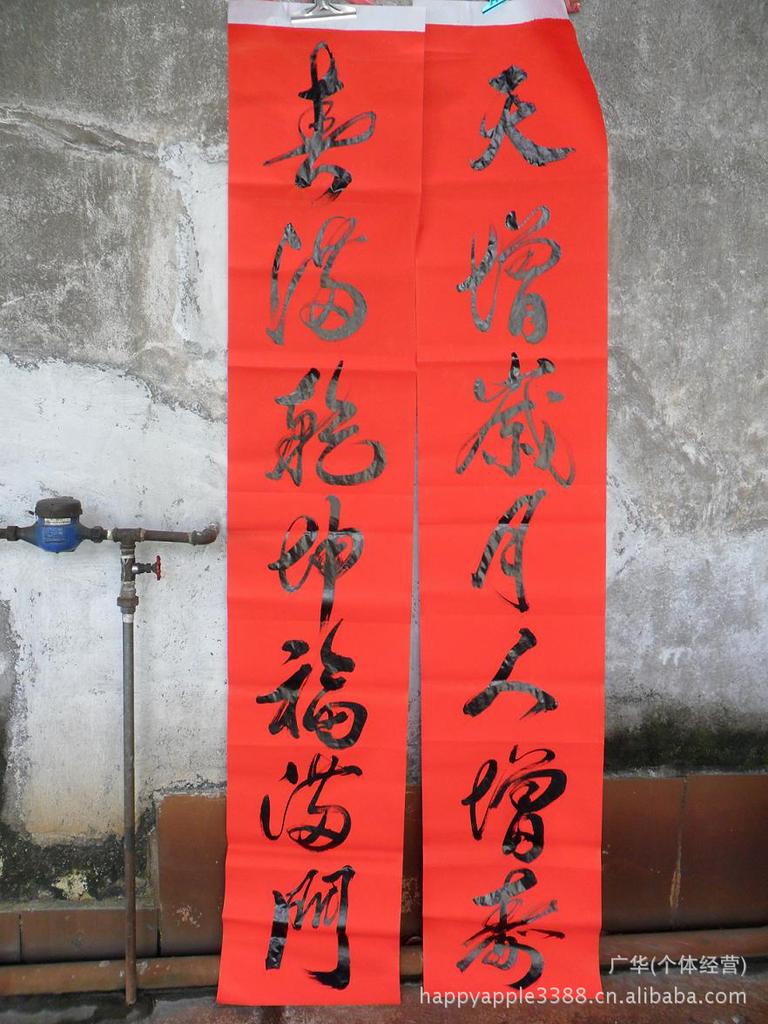 天增歲月人增壽
春滿乾坤福滿門
广华(个体经营)
happyapple3388.cn.alibaba.com